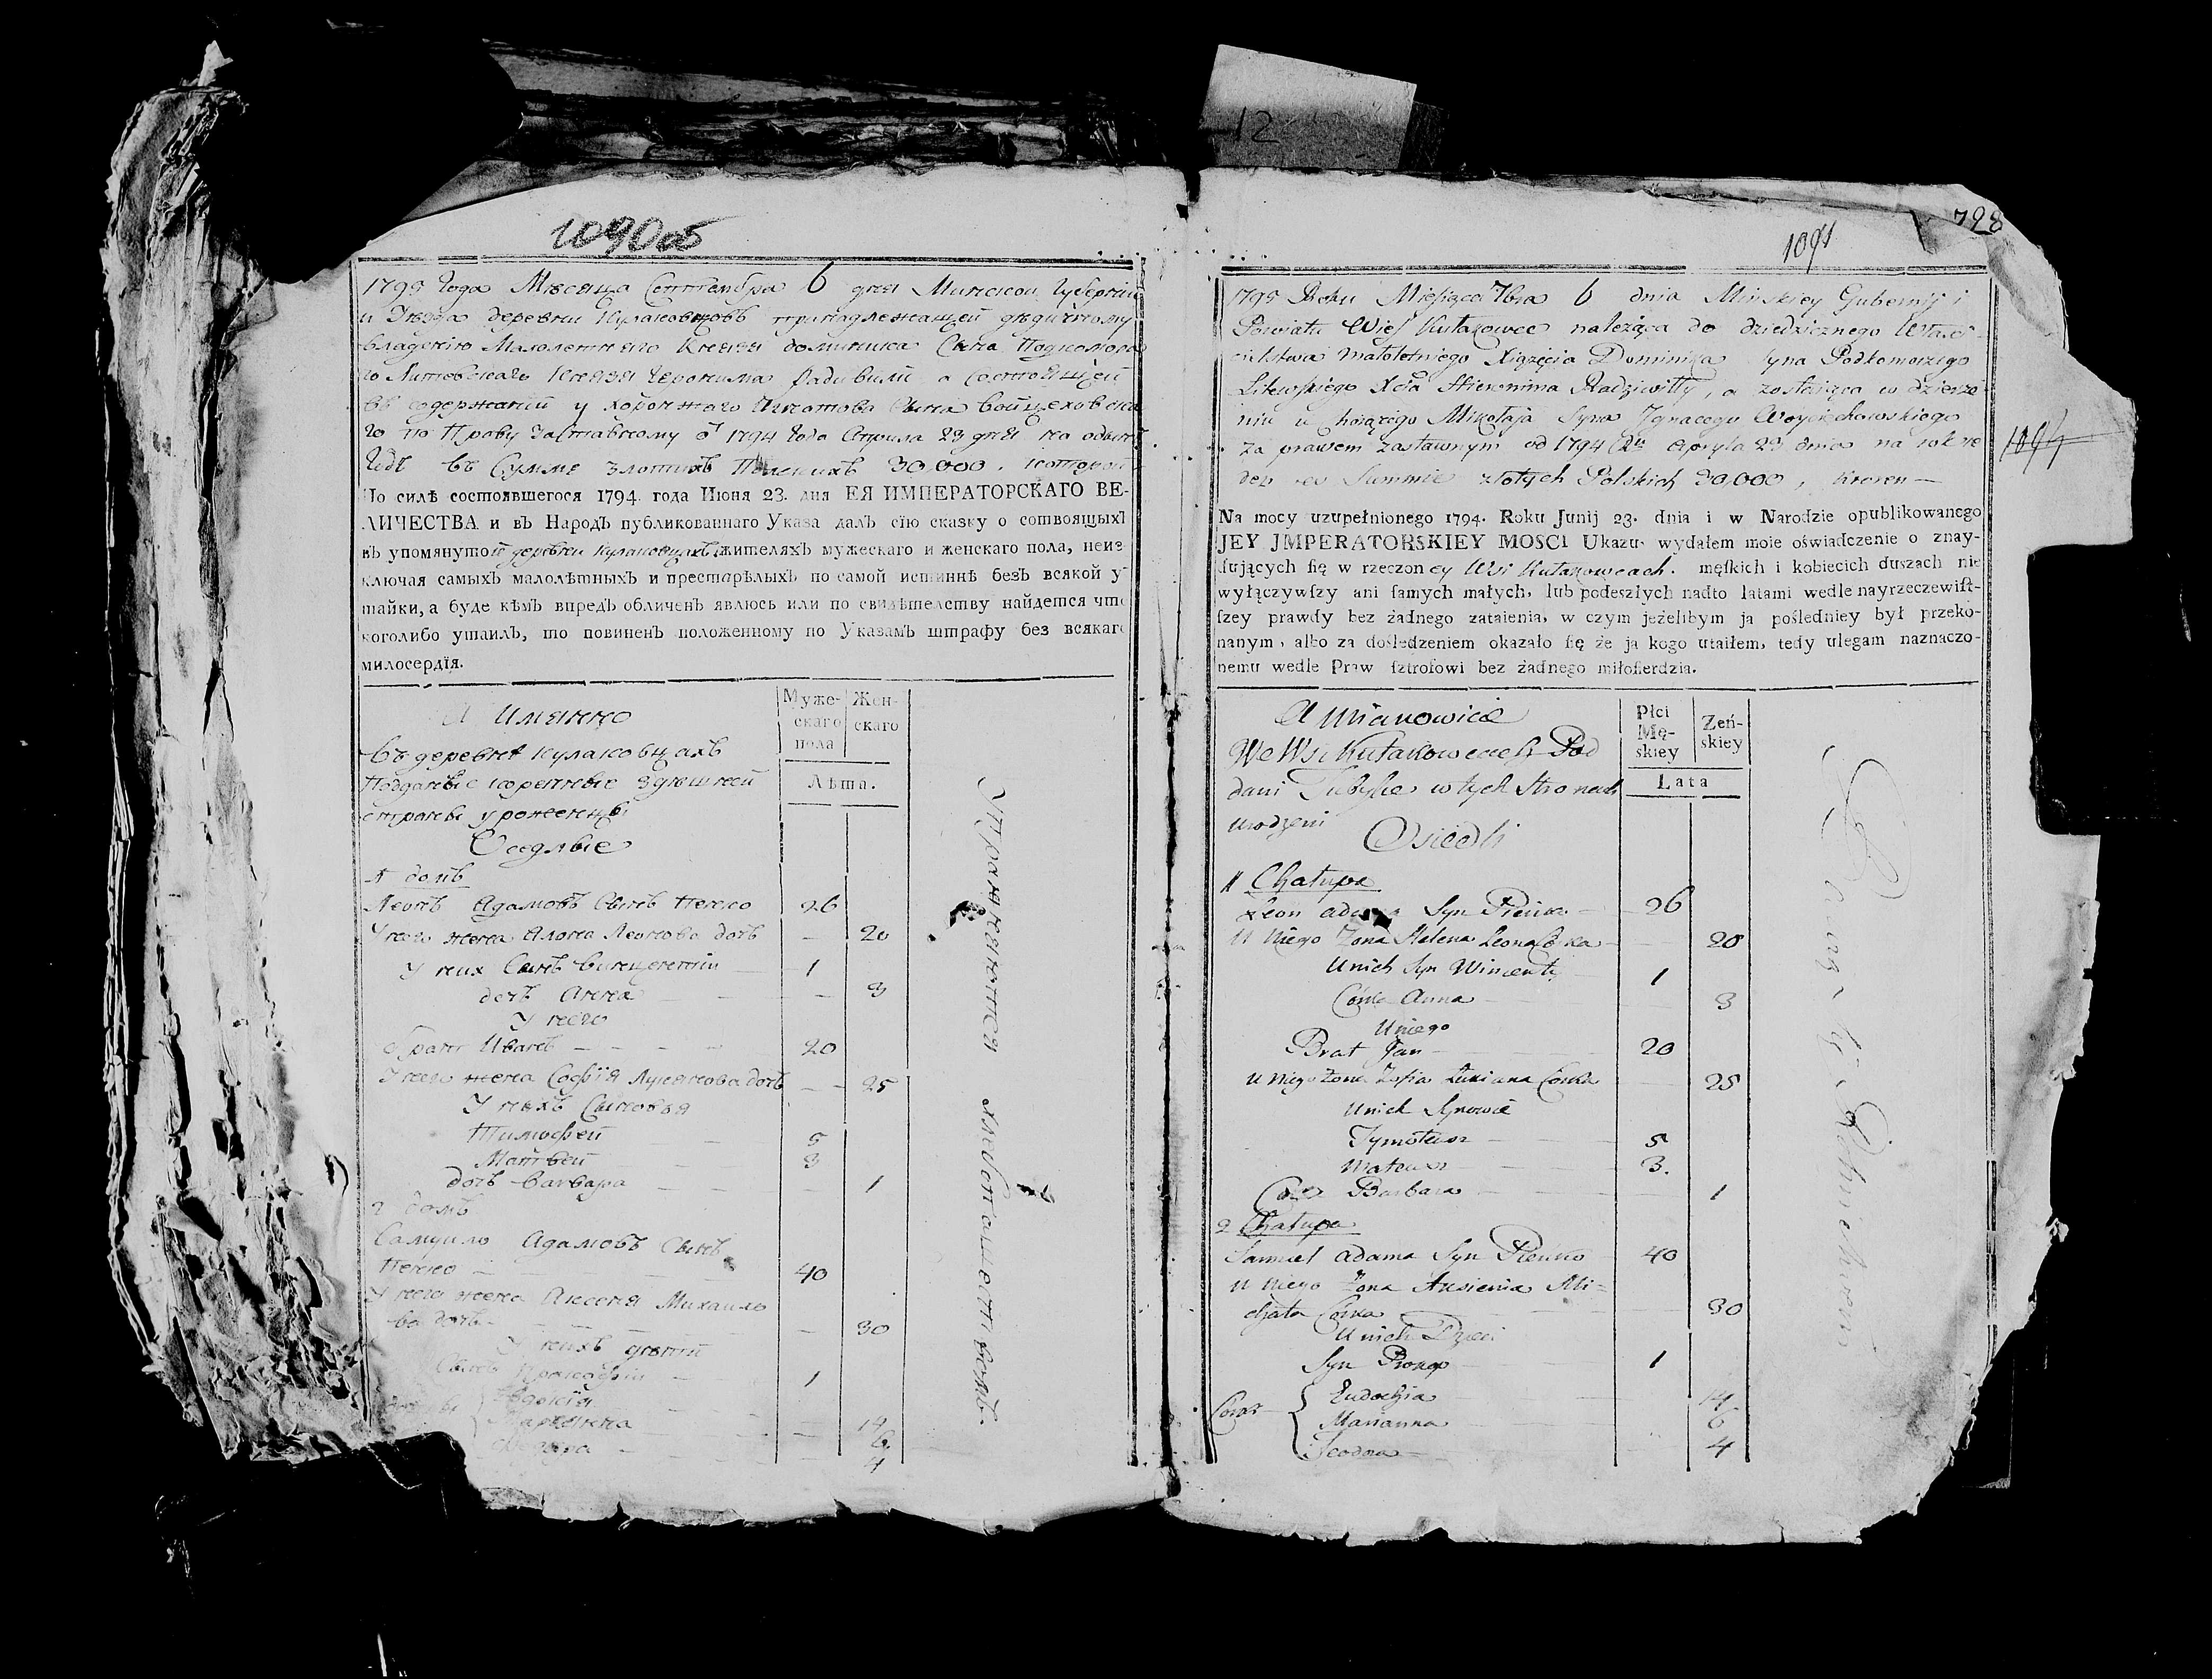 12
1090об
1795 года Месяца Септембра 6 дня Минской Губернии
и Уезда деревни Кулаковцовъ принадлежащей дедичному
владению Малолетняго Князя доминика Сына Подкоморо
го Литовскаго Князя Геронима Радивилы а состоящей
въ содержании у хоронжаго Игнатова Сына Войцеховска
го по Праву Заставному от 1794 года Априла 23 дня на одинъ
годъ въ Сумме Злотихъ Полскихъ 30,000.
По силѣ состоявшегося 1794. года Июня 23. дня ЕЯ ИМПЕРАТОРСКАГО ВЕ-
ЛИЧЕСТВА и въ Народъ публикованнаго Указа далъ сїю сказку о сотвоящыхъ
въ упомянутой деревни Кулаковцахъ жителяхъ мужескаго и женскаго пола, неиз-
ключая самыхъ малолѣтныхъ и престарѣлыхъ по самой истиннѣ безъ всякой у
тайки, а буде кѣмъ впредъ обличенъ явлюсь или по свидѣтелству найдется что
коголибо утаилъ, то повиненъ положенному по Указамъ штрафу без всякаго
милосердїя.
А Имянно
Муже-
скаго
пола
Жен-
скаго
Лѣта.
въ деревне Кулаковцахъ
Подданые коренные здешней
страны уроженцы
Оседлые
1 домъ
Леонъ Адамовъ Сынъ Пенко 26
У него жена Алона Леонова дочь — 20
У них Сынъ Винцентий — 1
дочь Анна — — — 3
У него
братъ Иванъ — — — — 20
У него жена Софїя Лукянова дочь — — 25
У нихъ Сыновья
Тимофей — 5
Матвей — 3
дочь Варвара — — — 1
2 домъ
Самуило Адамовъ Сынъ
Пенко — 40
У него жена Аксеня Михаило
ва дочь — — 30
У нихъ дети
Сынъ Прокофий — 1
Евдокия — 14
Марянна — 6
Федора — 4
1091
728
1091
1795 Roku Miesiąca 7bra 6 dnia Minskiey Gubernij i
Powiatu Wieś Kułakowce należąca do dziedzicznego Właś-
cicielstwa małoletniego Xiążęcia Dominika Syna Podkomorzego
Litewskiego Xcia Hieronima Radziwiłły, a zostaiąca w dzierża
niu u horążego Mikołaja Syna Jgnacego Woyciechowskiego
za prawem zastawnym od 1794 Apryla 23 dnia na rok ie
den w Summie złotych Polskich 30,000,
Na mocy uzupełnionego 1794. Roku Junij 23. dnia i w Narodzie opublikowanego
JEY JMPERATORSKIEY MOSCI Ukazu, wydałem moie oświadczenie o znay-
duiących ſię w rzeczoney Wsi Kułakowcach. męſkich i kobiecich duszach nie
wyłączywſzy ani ſamych małych, lub podeszłych nadto latami wedle nayrzeczewiſt-
ſzey prawdy bez żadnego zataienia, w czym jeżelibym ja poſledniey był przeko-
nanym, albo za dośledzeniem okazało ſię że ja kogo utaiłem, tedy ulegam naznaczo-
nemu wedle Praw ſztrofowi bez żadnego miłoſierdzia.
A Mianowicie
Płci
Mę-
skiey
Zeń-
skiey
Lata
We Wsi Kułakowcach Pod
dani Tubylce w tych Stronach
urodzeni
Osiedli
1 Chałupa
Leon Adama Syn Pieńko — 26
U Niego Zona Helena Leona Córka — 20
U nich Syn Wincenty — 1
Córka Anna — 3
U niego
Brat Jan — 20
U Niego Zona Zofia Łukiana Córka — 25
U nich Synowie
Tymoteusz — 5
Mateusz — 3.
Córka Barbara — 1
2 Chałupa
Samuel Adama Syn Pieńko — 40
U Niego Zona Auxienia Mi=
chała Córka — 30
U nich Dzieci
Syn Prokop — 1
Córki { Eudochia — 14
Marianna — 6
Teodora — 4